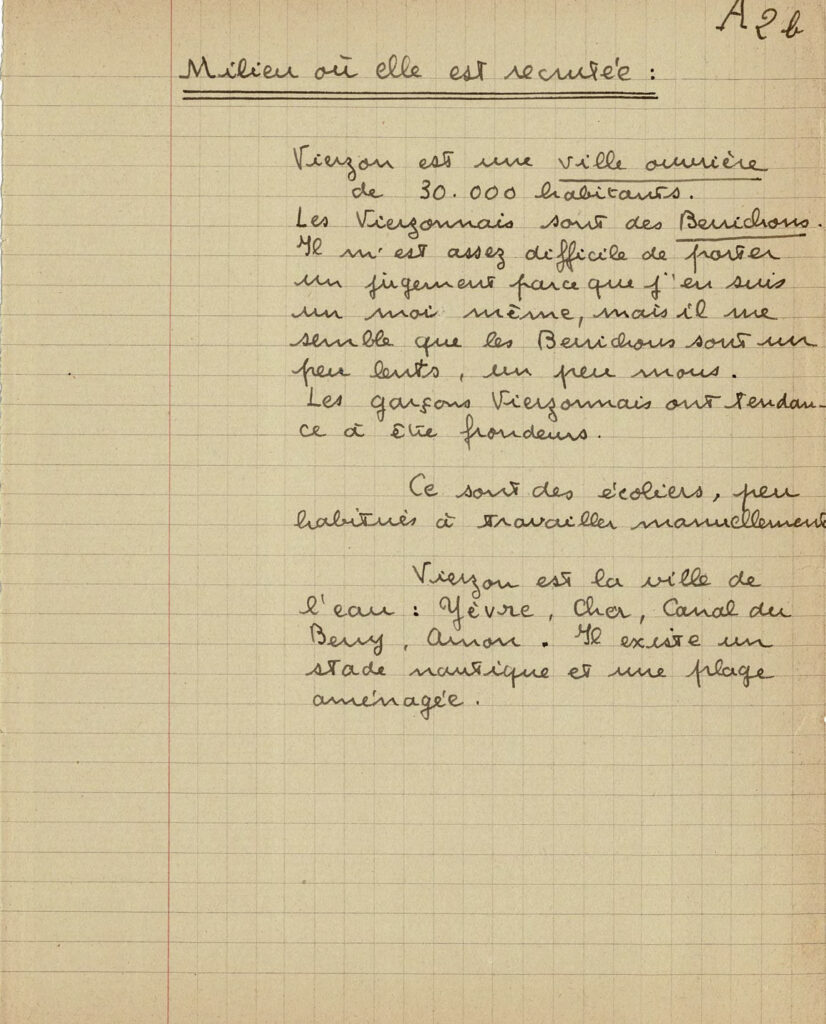 A2b
Milieu où elle est recrutée :
Vierzon est une ville ouvrière
de 30.000 habitants.
Les Vierzonnais sont des Berrichons.
Il m'est assez difficile de porter
un jugement parce que j'en suis
un moi même, mais il me
semble que les Berrichons sont un
peu lents, un peu mous.
Les garçons Vierzonnais ont tendan-
ce à être frondeurs.
Ce sont des écoliers, peu
habitués à travailler manuellement
Vierzon est la ville de
l'eau : Yèvre, Cher, Canal du
Berry, Arnon. Il existe un
stade nautique et une plage
aménagée.